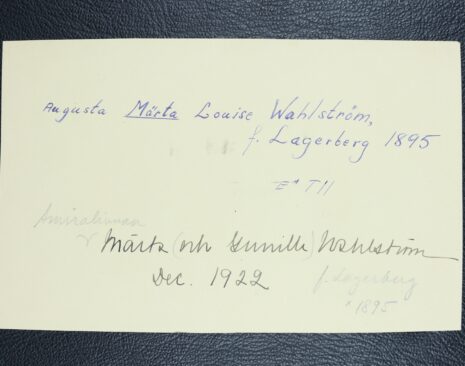 Augusta Märta Louise Wahlström,
f. Lagerberg 1895
Amiralinnan
Märta (och Gunilla) Wahlström
Dec. 1922
f. Lagerberg
* 1895